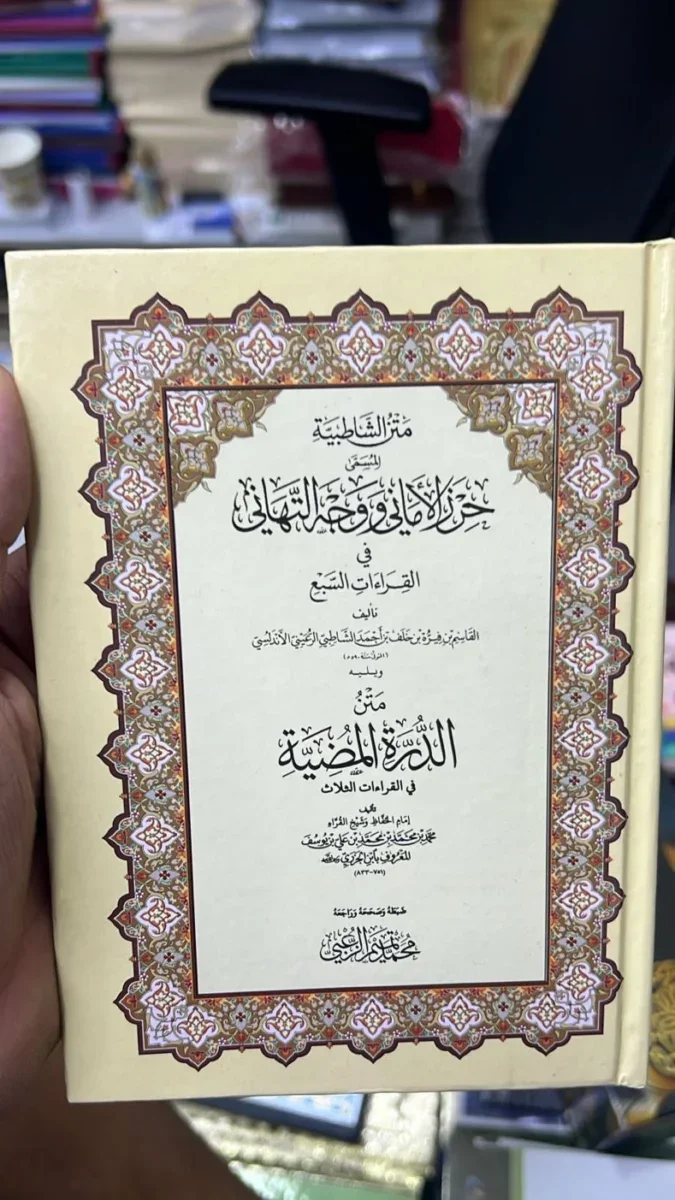 مَتْنُ الشَّاطِبِيَّة
المُسَمَّى
حِرْزَ الأَمَانِي وَوَجْهَ التَّهَانِي
فِي
القِرَاءَاتِ السَّبْعِ
تأليف
القَاسِم بْن فِيرُّه بْن خَلَف بْن أَحْمَد الشَّاطِبِيّ الرُّعَيْنِيّ الأَنْدَلُسِيّ
(المتوفى سنة ٥٩٠ هـ)
ويليه
مَتْنُ
الدُّرَّةِ المُضِيَّةِ
في القراءات الثلاث
تأليف
إمَامِ الحُفَّاظِ وَشَيْخِ القُرَّاءِ
مُحَمَّد بْن مُحَمَّد بْن مُحَمَّد بْن عَلِي بْن يُوسُف
المَعْرُوفِ بِابْنِ الجَزَرِيّ رَحِمَهُ اللهُ
(٧٥١-٨٣٣)
ضَبَطَهُ وَصَحَّحَهُ وَرَاجَعَهُ
مُحَمَّد تَمِيم الزُّعْبِي